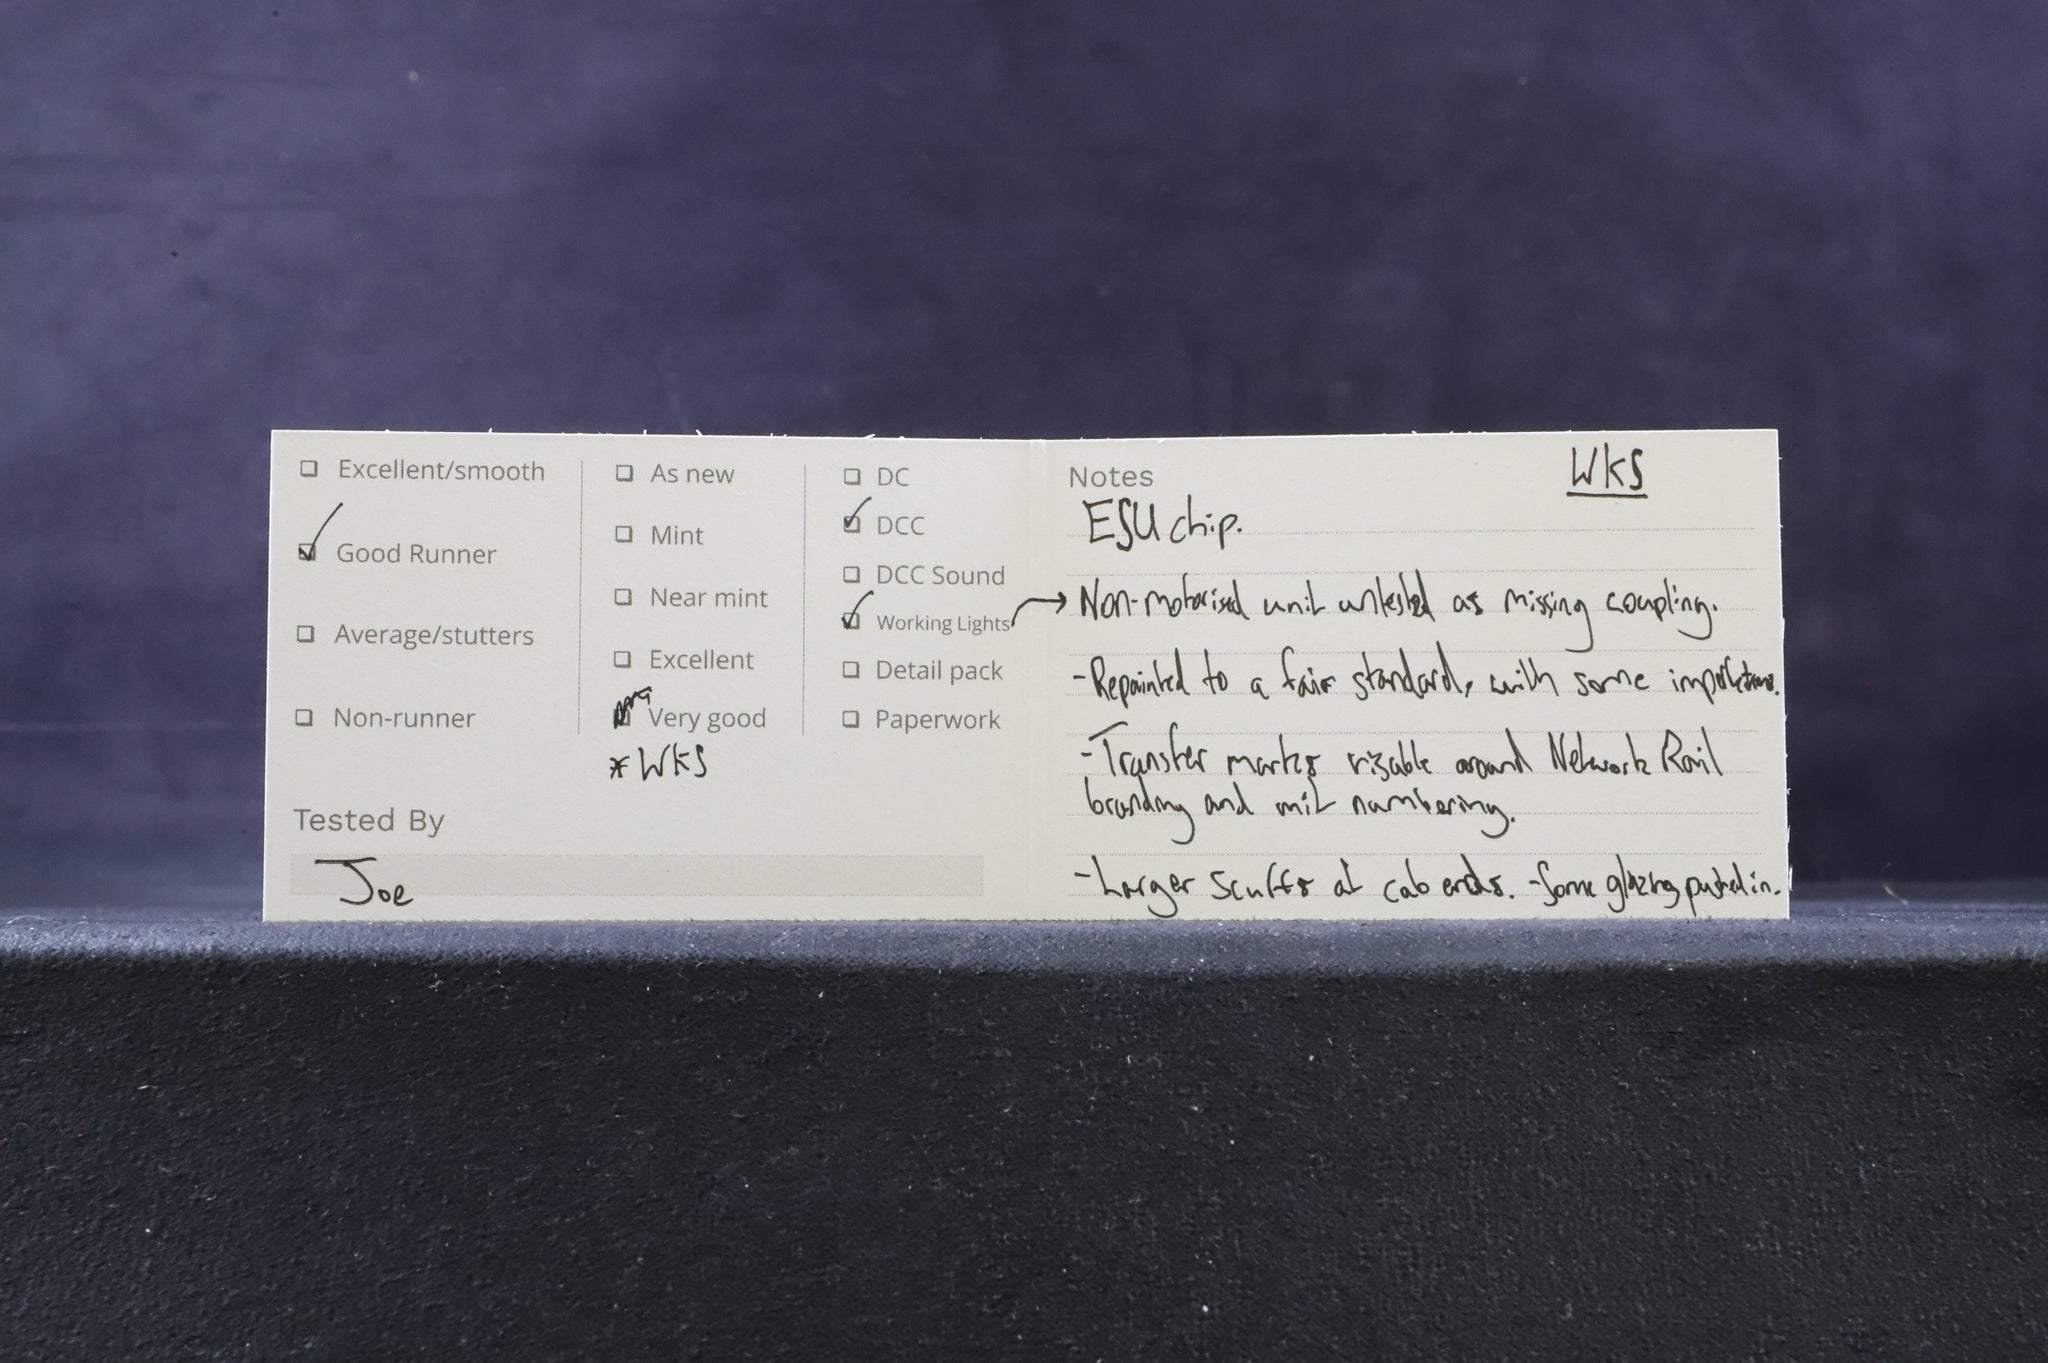 Excellent/smooth
Good Runner
Average/stutters
Non-runner
As new
Mint
Near mint
Excellent
Very good
*WKS
DC
DCC
DCC Sound
Working Lights
Detail pack
Paperwork
Tested By
Joe
Notes
WKS
ESU chip.
Non-motorised unit untested as missing coupling.
-Repainted to a fair standard, with some imperfections.
-Transfer marks visable around Network Rail
branding and unit numbering.
-Larger scuffs at cab ends. -Some glazing pushed in.